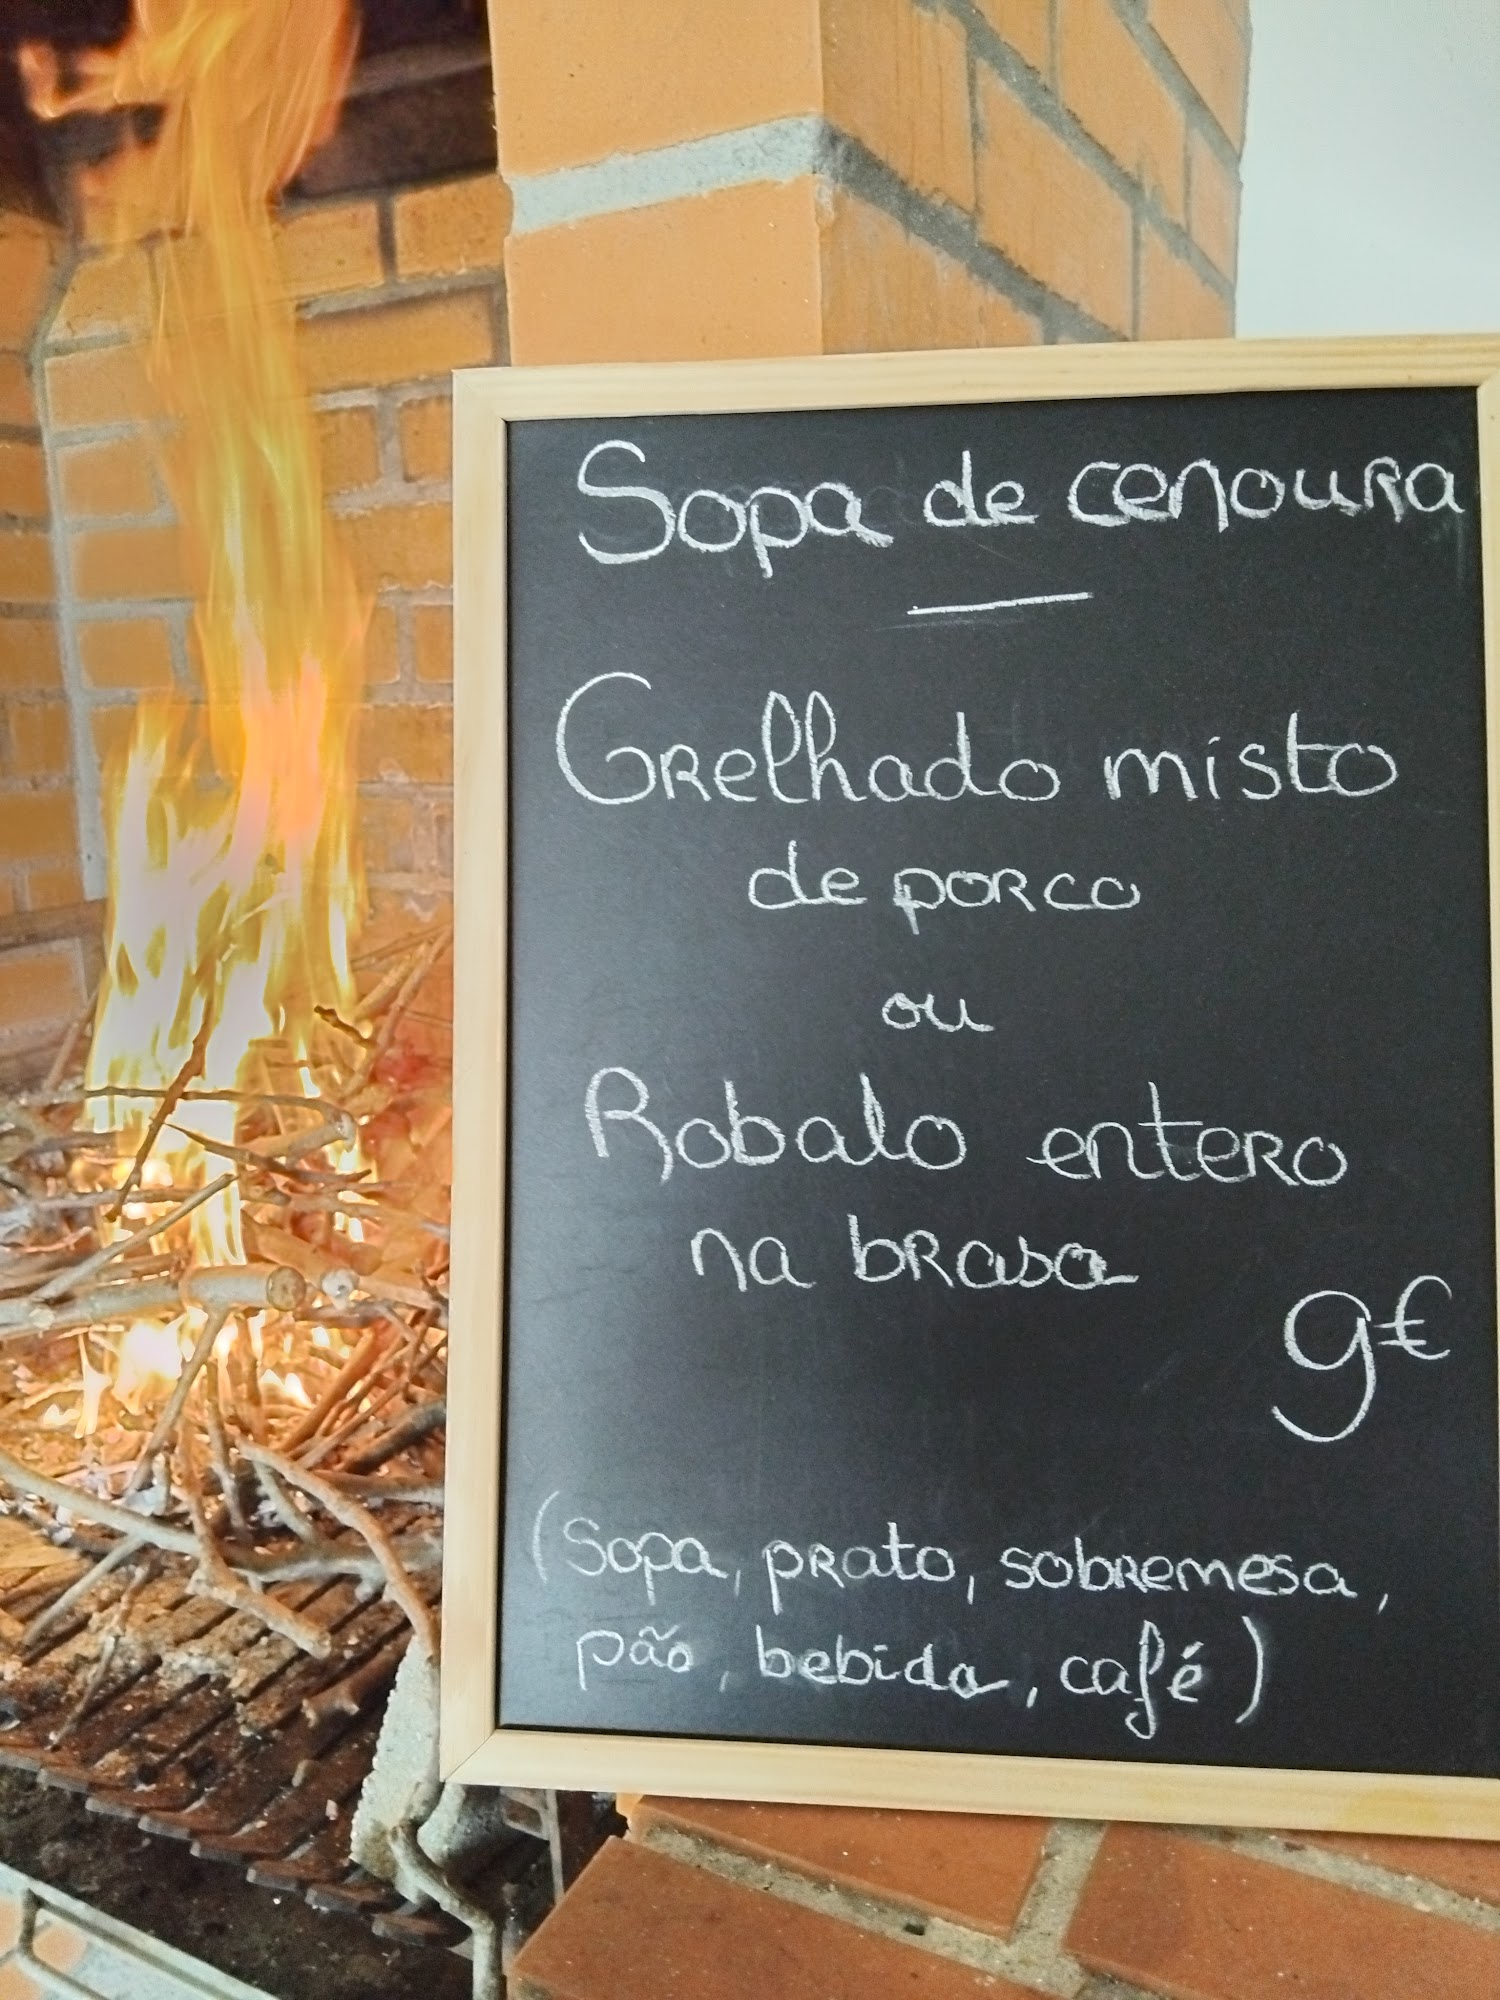 Sopa de cenoura
Grelhado misto
de porco
ou
Robalo entero
na brasa
9€
(Sopa, prato, sobremesa,
pão, bebida, café)